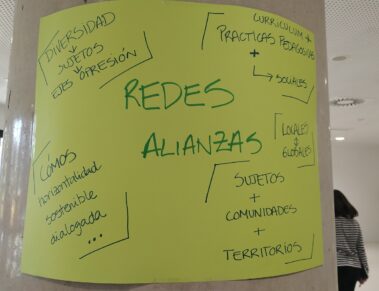 DIVERSIDAD
SUJETOS
EJES OPRESIÓN
CURRICULUM +
PRÁCTICAS PEDAGÓGICAS
+
↳ SOCIALES
REDES
ALIANZAS
LOCALES
GLOBALES
CÓMOS
horizontalidad
sostenible
dialogada
...
SUJETOS
+
COMUNIDADES
+
TERRITORIOS